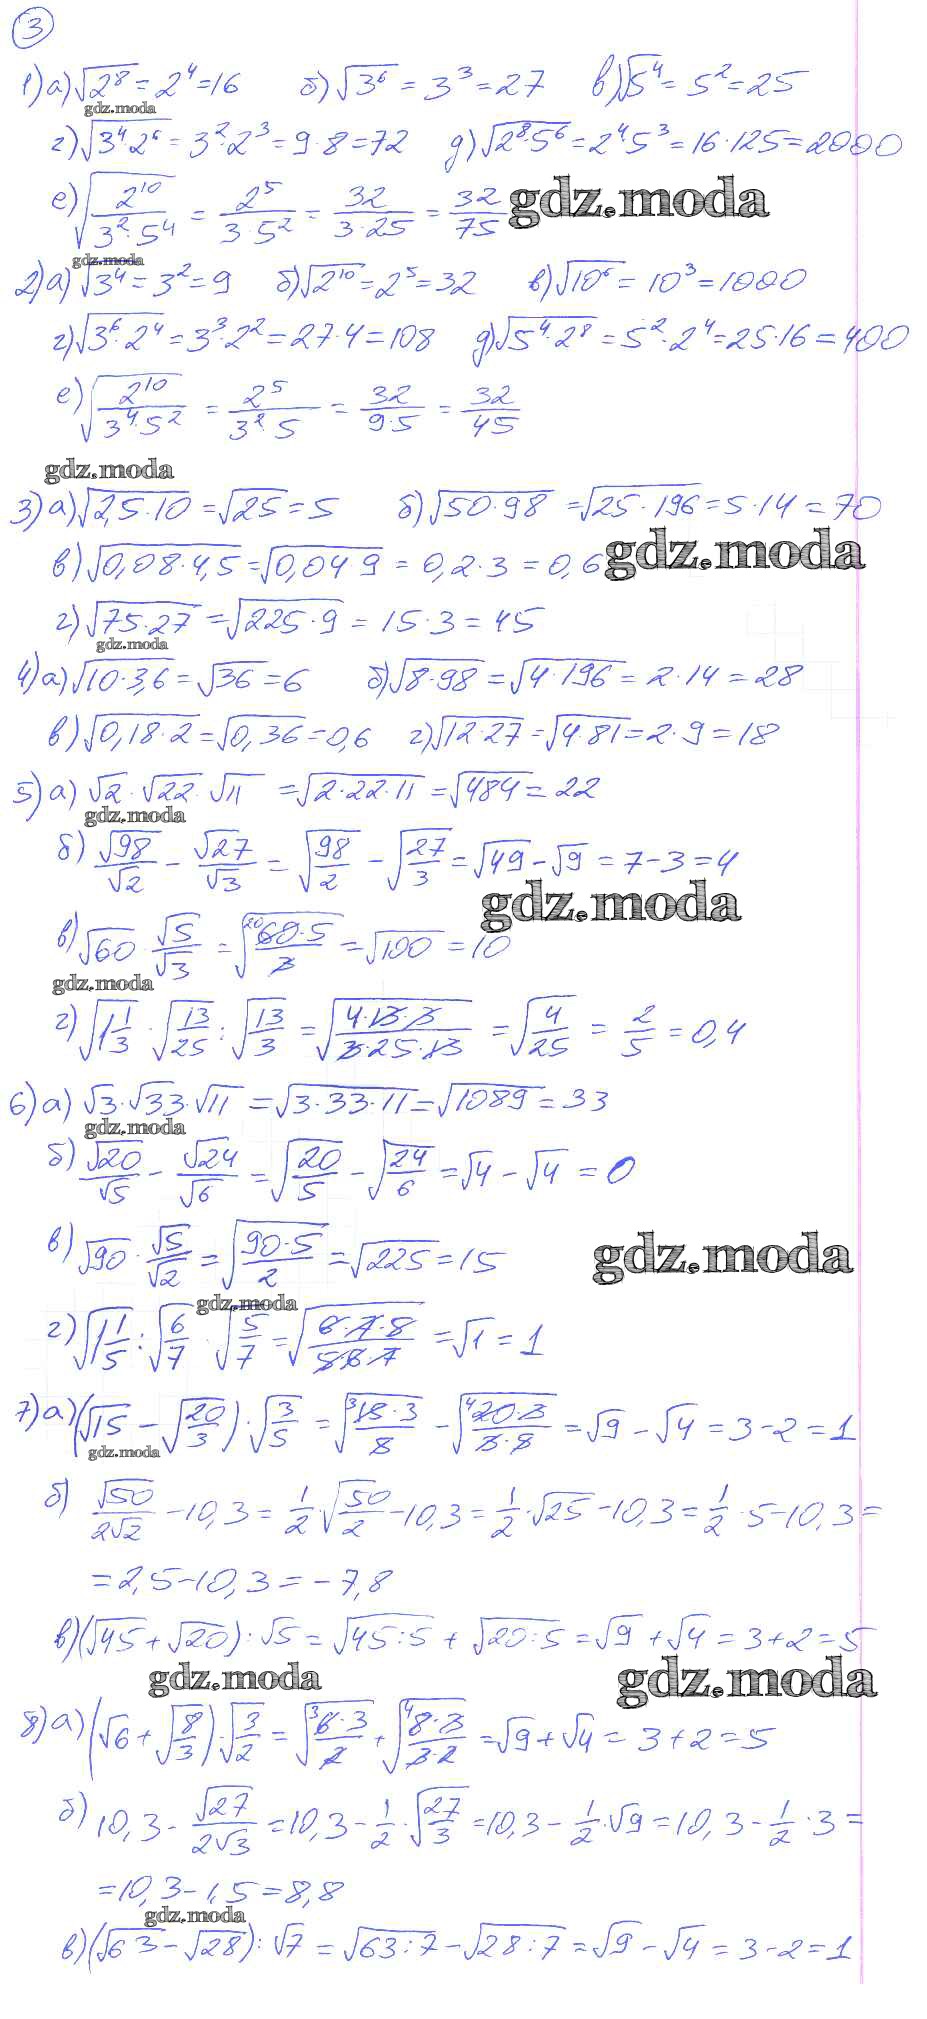 3
1) а) √2⁸ = 2⁴ = 16 б) √3⁶ = 3³ = 27 в) √5⁴ = 5² = 25
gdz.moda
г) √3⁴·2⁶ = 3²·2³ = 9·8 = 72 д) √2⁸·5⁶ = 2⁴·5³ = 16·125 = 2000
е) √(2¹⁰/(3²·5⁴)) = 2⁵/(3·5²) = 32/(3·25) = 32/75 gdz.moda
gdz.moda
2) а) √3⁴ = 3² = 9 б) √2¹⁰ = 2⁵ = 32 в) √10⁶ = 10³ = 1000
г) √3⁶·2⁴ = 3³·2² = 27·4 = 108 д) √5⁴·2⁸ = 5²·2⁴ = 25·16 = 400
е) √(2¹⁰/(3⁴·5²)) = 2⁵/(3²·5) = 32/(9·5) = 32/45
gdz.moda
3) а) √2,5·10 = √25 = 5 б) √50·98 = √25·196 = 5·14 = 70
в) √0,08·4,5 = √0,04·9 = 0,2·3 = 0,6 gdz.moda
г) √75·27 = √225·9 = 15·3 = 45
gdz.moda
4) а) √10·3,6 = √36 = 6 б) √8·98 = √4·196 = 2·14 = 28
в) √0,18·2 = √0,36 = 0,6 г) √12·27 = √4·81 = 2·9 = 18
5) а) √2·√22·√11 = √2·22·11 = √484 = 22
gdz.moda
б) √98/√2 - √27/√3 = √(98/2) - √(27/3) = √49 - √9 = 7 - 3 = 4
gdz.moda
в) √60 · √5/√3 = √(²⁰60·5/3) = √100 = 10
gdz.moda
г) √(1 1/3) · √(13/25) : √(13/3) = √(4·13·3/(3·25·13)) = √(4/25) = 2/5 = 0,4
6) а) √3·√33·√11 = √3·33·11 = √1089 = 33
gdz.moda
б) √20/√5 - √24/√6 = √(20/5) - √(24/6) = √4 - √4 = 0
в) √90 · √5/√2 = √(90·5/2) = √225 = 15
gdz.moda
gdz.moda
г) √(1 1/5) : √(6/7) · √(5/7) = √(6·7·5/(5·6·7)) = √1 = 1
7) а) (√15 - √(20/3)) · √(3/5) = √(³15·3/5) - √(⁴20·3/(3·5)) = √9 - √4 = 3 - 2 = 1
gdz.moda
б) √50/2√2 - 10,3 = 1/2·√(50/2) - 10,3 = 1/2·√25 - 10,3 = 1/2·5 - 10,3 =
= 2,5 - 10,3 = -7,8
в) (√45 + √20) : √5 = √45:5 + √20:5 = √9 + √4 = 3 + 2 = 5
gdz.moda gdz.moda
8) а) (√6 + √(8/3)) · √(3/2) = √(³6·3/2) + √(⁴8·3/(3·2)) = √9 + √4 = 3 + 2 = 5
б) 10,3 - √27/2√3 = 10,3 - 1/2·√(27/3) = 10,3 - 1/2·√9 = 10,3 - 1/2·3 =
= 10,3 - 1,5 = 8,8
gdz.moda
в) (√63 - √28) : √7 = √63:7 - √28:7 = √9 - √4 = 3 - 2 = 1